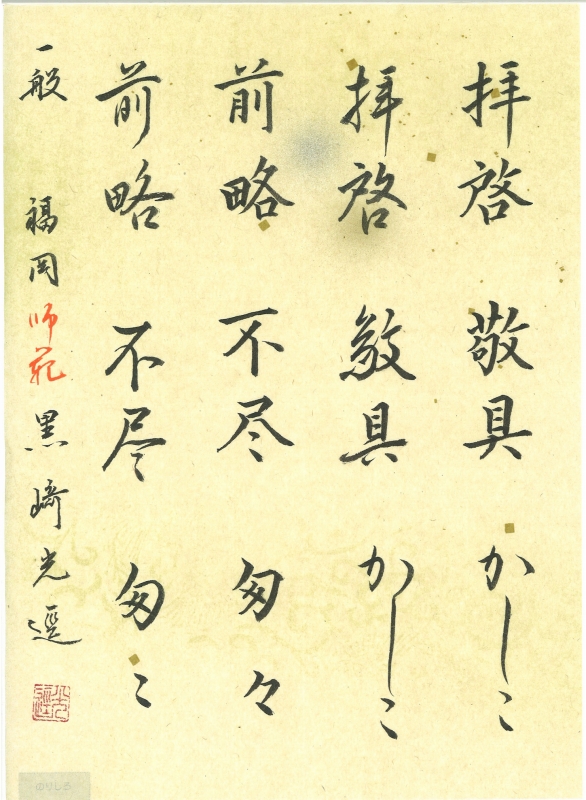 拝啓 敬具 かしこ
拝啓 敬具 かしこ
前略 不尽 匆々
前略 不尽 匆々
一般 福岡 師範 黒崎光逕
のりしろ